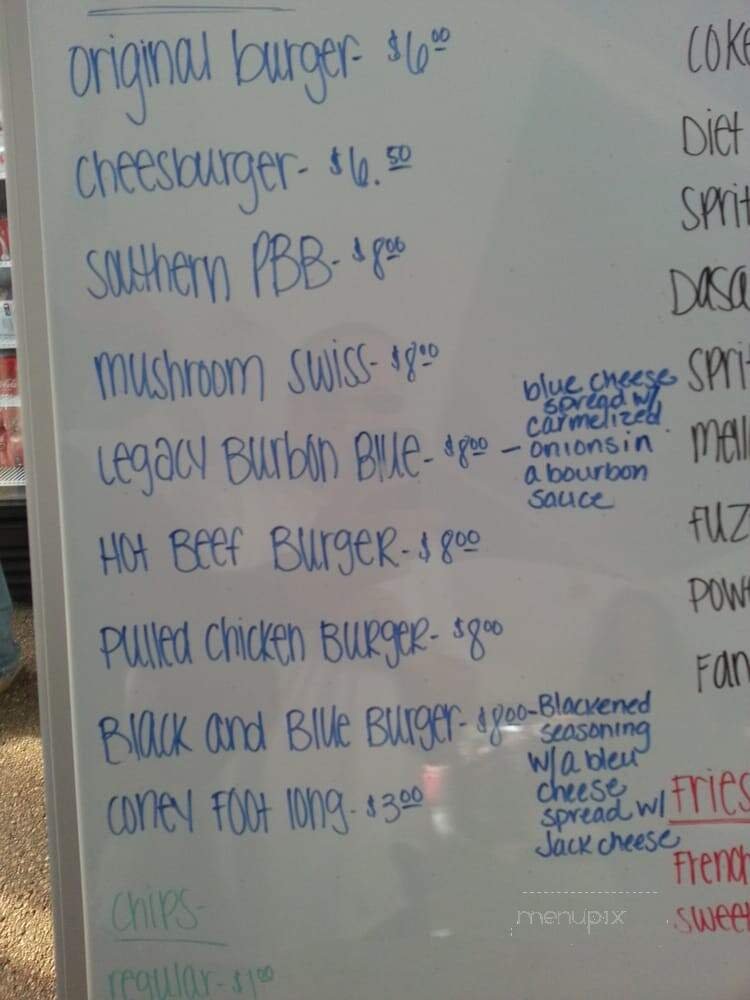 original burger- $6.00
COKE
cheesburger- $6.50
Diet
southern PBB- $8.00
Sprit
Dasa
mushroom swiss- $8.00
Spri
Legacy Burbon Blue- $8.00 - blue cheese
spread w/
carmelized
onions in
a bourbon
sauce
mell
Hot Beef Burger- $8.00
FUZ
pulled chicken Burger- $8.00
POW
Fan
Black and Blue Burger- $8.00 - Blackened
seasoning
w/ a bleu
cheese
spread w/
Jack cheese
coney Foot long- $3.00
Fries
French
sweet
chips-
regular- $1.00
menupix